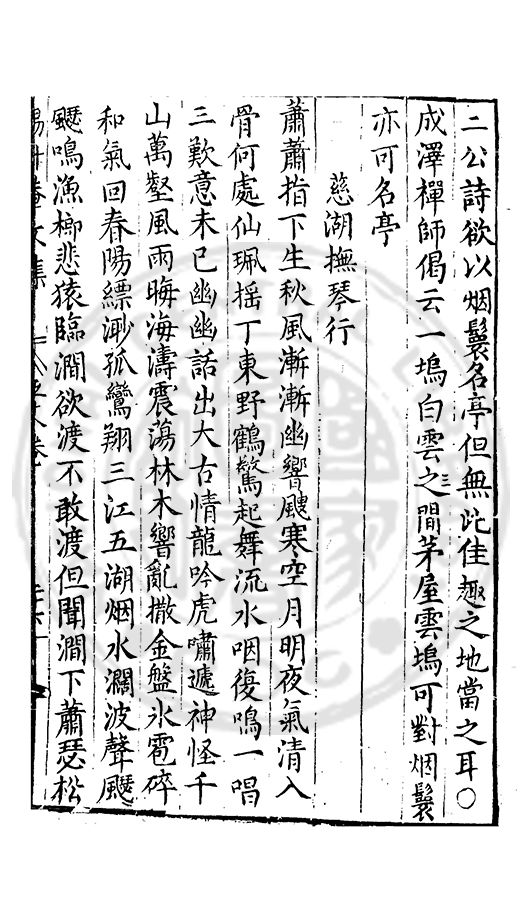 二公詩欲以烟鬟名亭但無此佳趣之地當之耳〇
成澤禪師偈云一塢白雲之三間茅屋雲塢可對烟鬟
亦可名亭
慈湖撫琴行
蕭蕭指下生秋風漸漸幽響颼寒空月明夜氣清入
骨何處仙珮摇丁東野鶴驚起舞流水咽復鳴一唱
三歎意未已幽幽話出大古情龍吟虎嘯遽神怪千
山萬壑風雨晦海濤震蕩林木響亂撒金盤氷雹碎
和氣回春陽縹渺孤鸞翔三江五湖烟水濶波聲颼
颼鳴漁榔悲猿臨澗欲渡不敢渡但聞澗下蕭瑟松